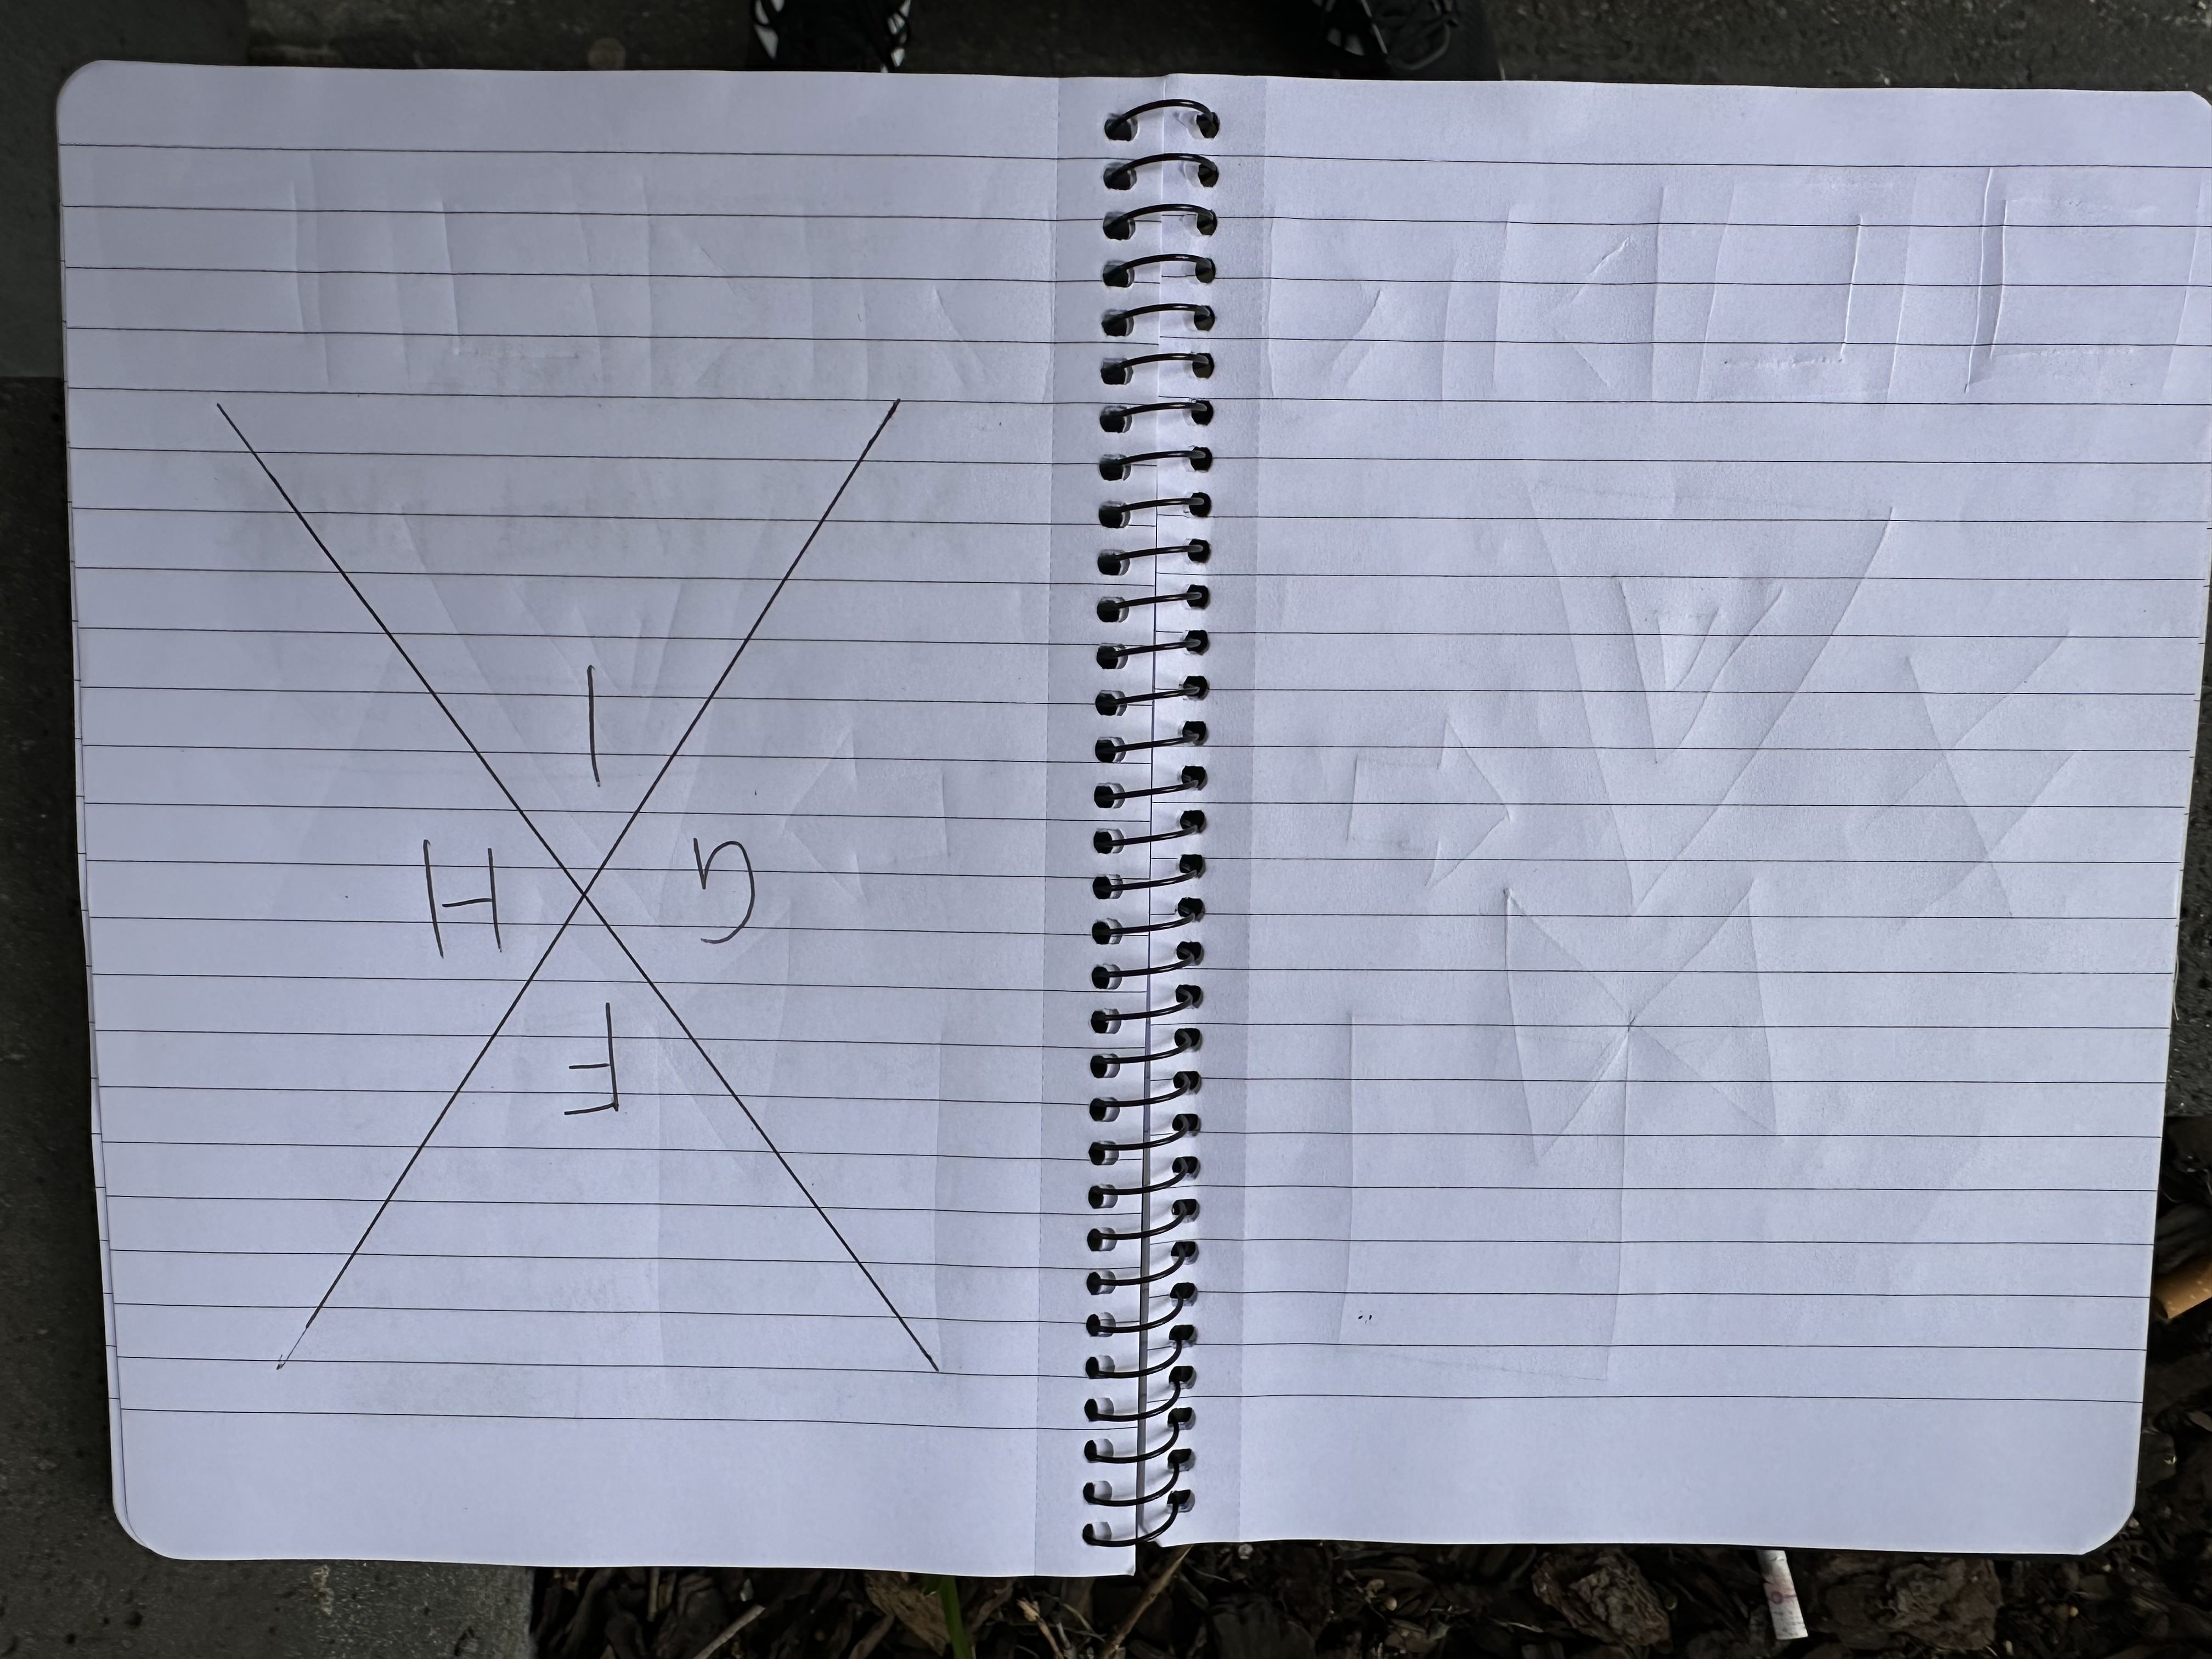 F
G H
I